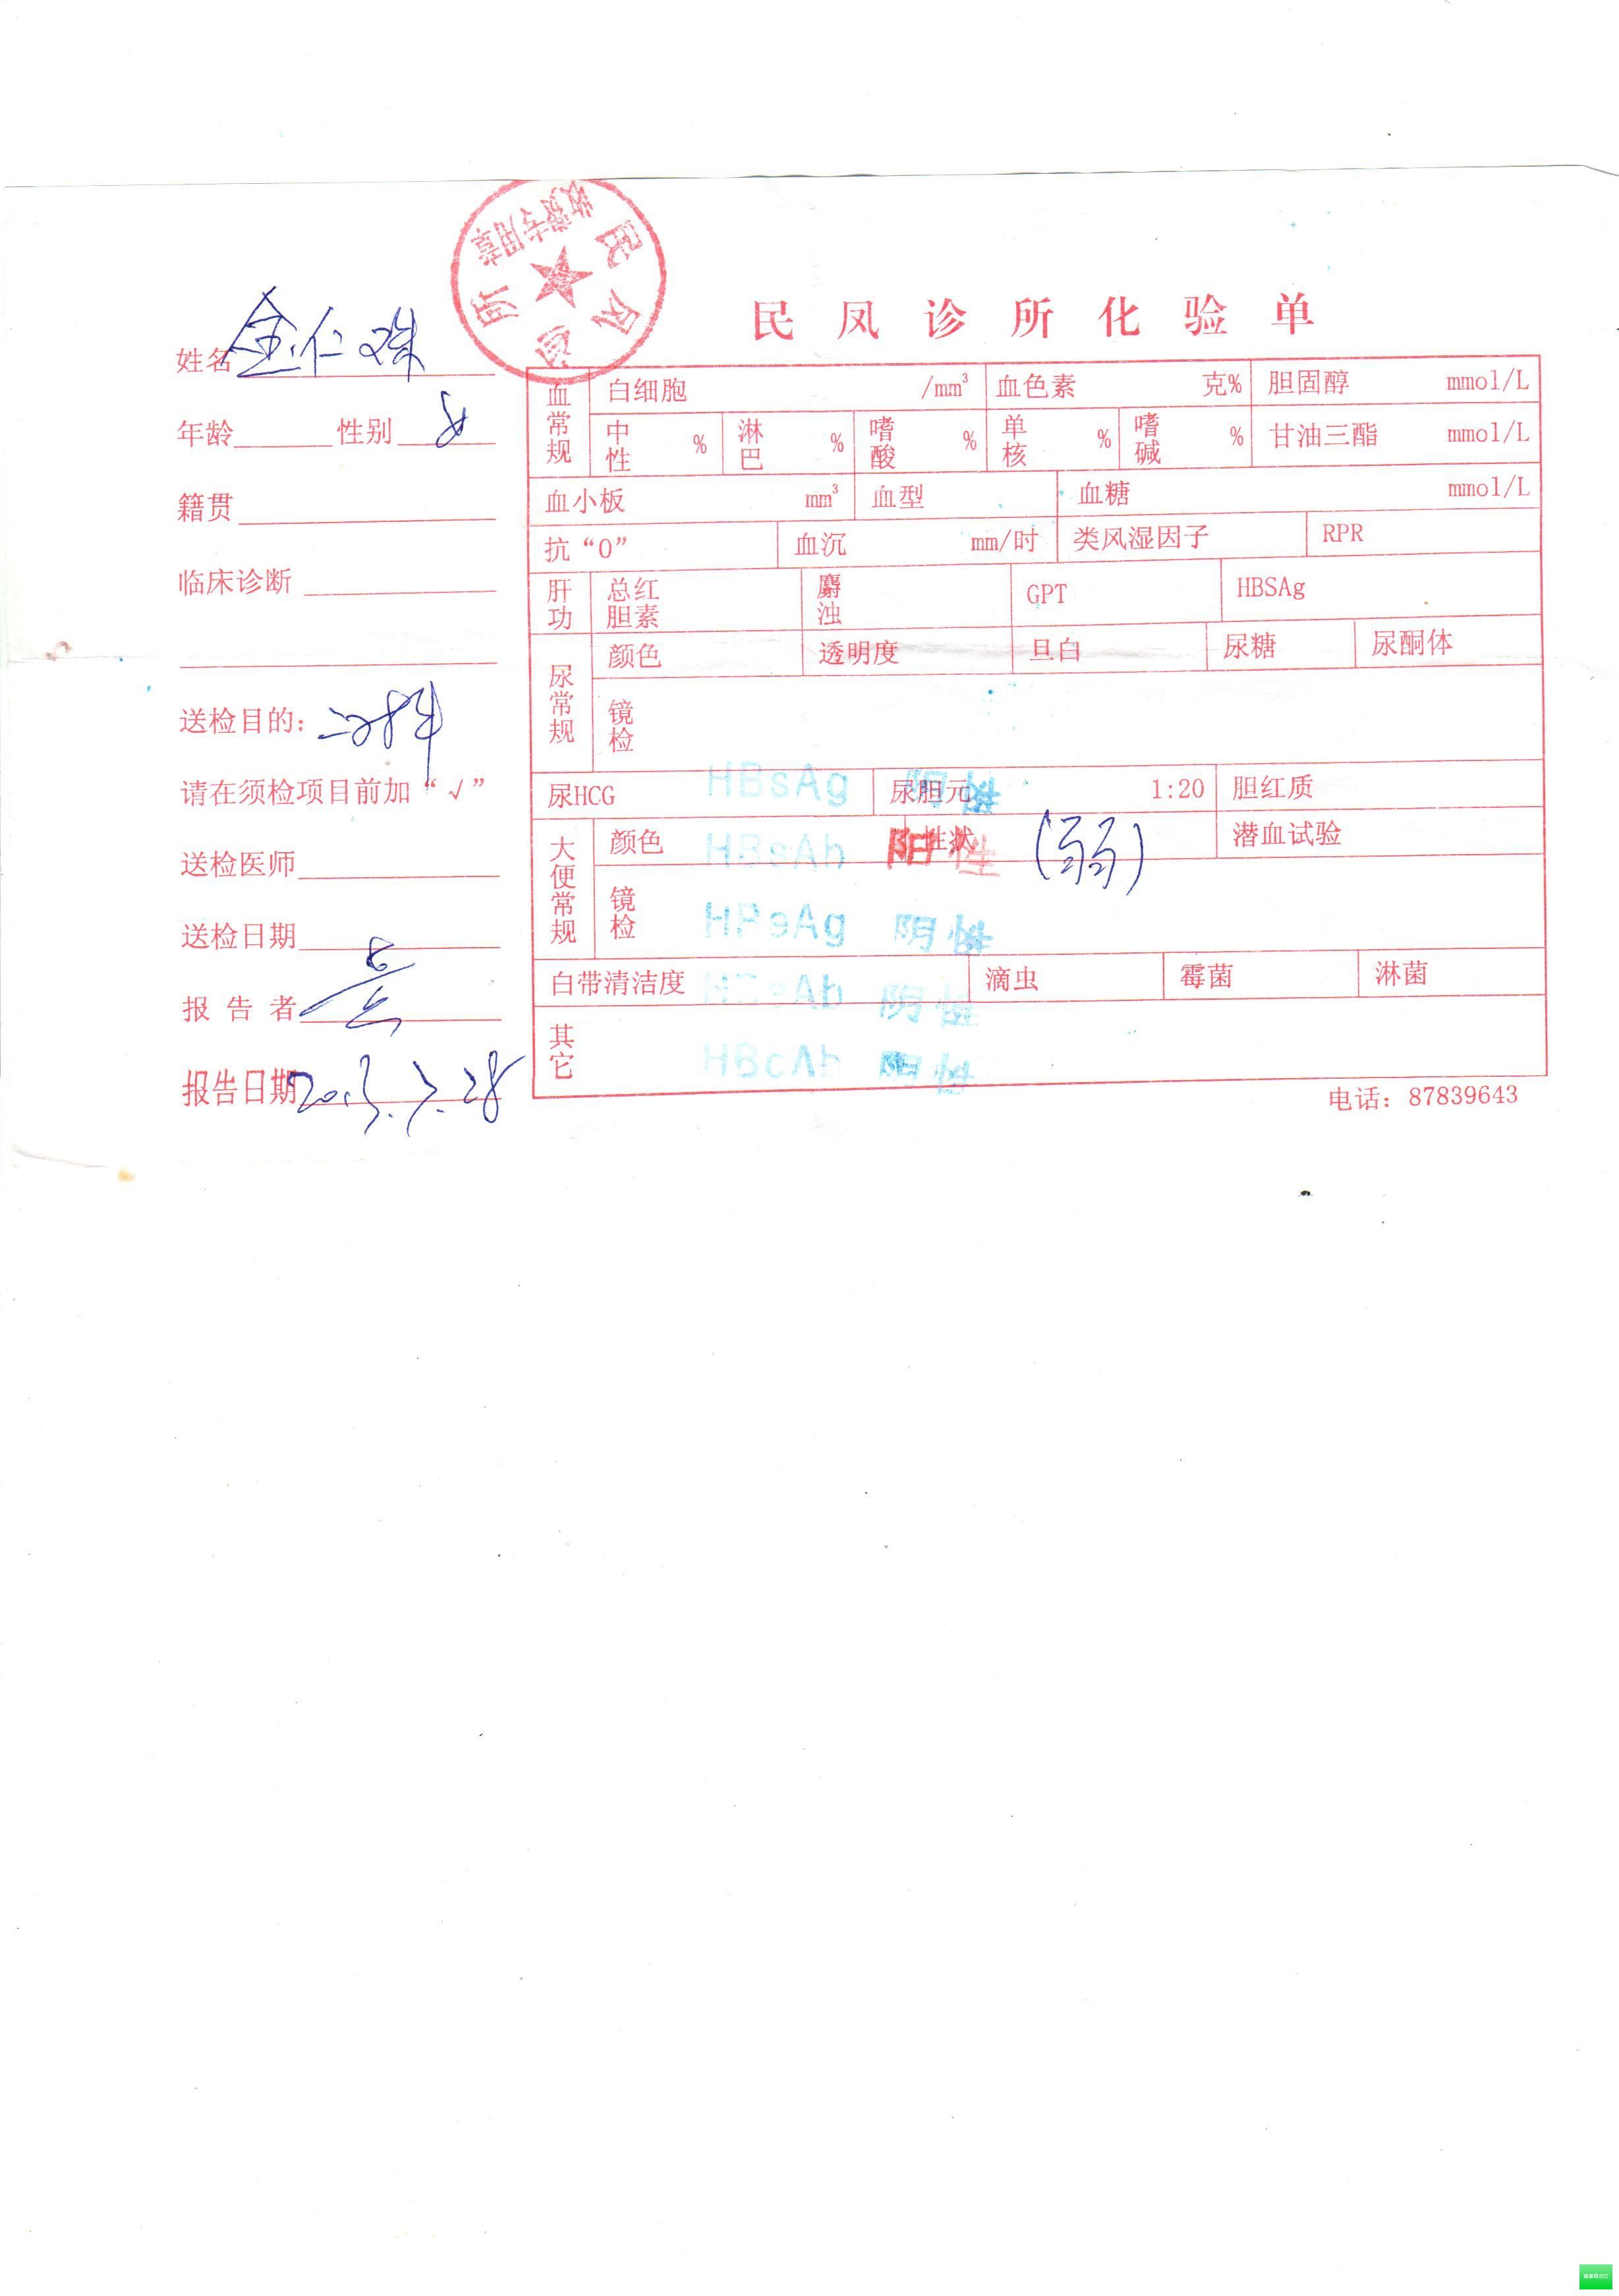 民凤诊所
收费专用章
民凤诊所化验单
姓名 金仁珠
年龄 性别 女
籍贯
临床诊断
送检目的: 二对半
请在须检项目前加“√”
送检医师
送检日期
报告者
报告日期 2013.7.28
血常规 白细胞 /mm³ 血色素 克% 胆固醇 mmol/L
中性 % 淋巴 % 嗜酸 % 单核 % 嗜碱 % 甘油三酯 mmol/L
血小板 mm³ 血型 血糖 mmol/L
抗“O” 血沉 mm/时 类风湿因子 RPR
肝功 总红胆素 麝浊 GPT HBSAg
尿常规 颜色 透明度 旦白 尿糖 尿酮体
镜检
尿HCG 尿胆元 1:20 胆红质
HBsAg 阴性
大便常规 颜色 性状 潜血试验
HBsAb 阳性 (弱)
镜检
HBeAg 阴性
白带清洁度 滴虫 霉菌 淋菌
HBeAb 阴性
其它
HBcAb 阴性
电话: 87839643